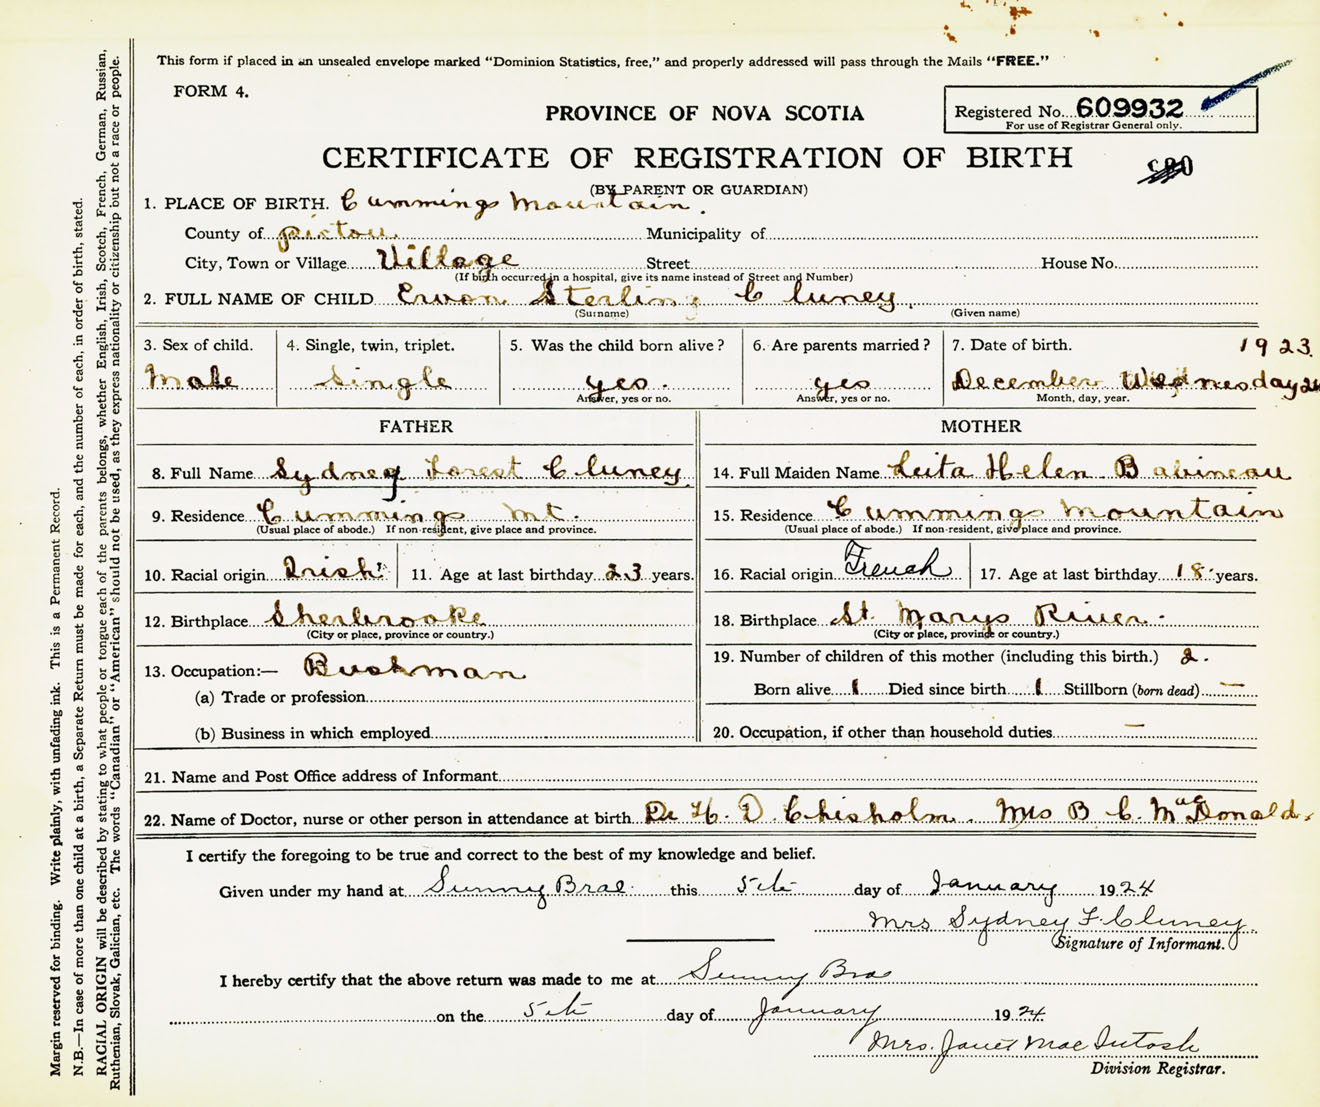 This form if placed in an unsealed envelope marked "Dominion Statistics, free," and properly addressed will pass through the Mails "FREE."
FORM 4.
PROVINCE OF NOVA SCOTIA
Registered No. 609932
For use of Registrar General only.
CERTIFICATE OF REGISTRATION OF BIRTH
(BY PARENT OR GUARDIAN)
1. PLACE OF BIRTH. Cummings Mountain.
County of pictou Municipality of
City, Town or Village Village Street House No.
(If birth occurred in a hospital, give its name instead of Street and Number)
2. FULL NAME OF CHILD Ervon Sterling Cluney.
(Surname) (Given name)
3. Sex of child. 4. Single, twin, triplet. 5. Was the child born alive? 6. Are parents married? 7. Date of birth. 1923.
Male Single yes. yes December Wednesday 26
Answer, yes or no. Answer, yes or no. Month, day, year.
FATHER MOTHER
8. Full Name Sydney Forest Cluney. 14. Full Maiden Name Leita Helen Babineau
9. Residence Cummings Mt. 15. Residence Cummings Mountain
(Usual place of abode.) If non-resident, give place and province. (Usual place of abode.) If non-resident, give place and province.
10. Racial origin Irish 11. Age at last birthday 23 years. 16. Racial origin French 17. Age at last birthday 18 years.
12. Birthplace Sherbrooke 18. Birthplace St. Marys River.
(City or place, province or country.) (City or place, province or country.)
13. Occupation:— Bushman 19. Number of children of this mother (including this birth.) 2.
(a) Trade or profession Born alive 1 Died since birth 1 Stillborn (born dead) —
(b) Business in which employed 20. Occupation, if other than household duties —
21. Name and Post Office address of Informant
22. Name of Doctor, nurse or other person in attendance at birth Dr H. D Chisholm. Mrs B C. MacDonald.
I certify the foregoing to be true and correct to the best of my knowledge and belief.
Given under my hand at Sunny Brae this 5th day of January 1924
Mrs Sydney F. Cluney
Signature of Informant.
I hereby certify that the above return was made to me at Sunny Brae
on the 5th day of January 1924
Mrs. Janet MacIntosh
Division Registrar.
Margin reserved for binding. Write plainly, with unfading ink. This is a Permanent Record.
N.B.—In case of more than one child at a birth, a Separate Return must be made for each, and the number of each, in order of birth, stated.
RACIAL ORIGIN will be described by stating to what people or tongue each of the parents belongs, whether English, Irish, Scotch, French, German, Russian,
Ruthenian, Slovak, Galician, etc. The words "Canadian" or "American" should not be used, as they express nationality or citizenship but not a race or people.